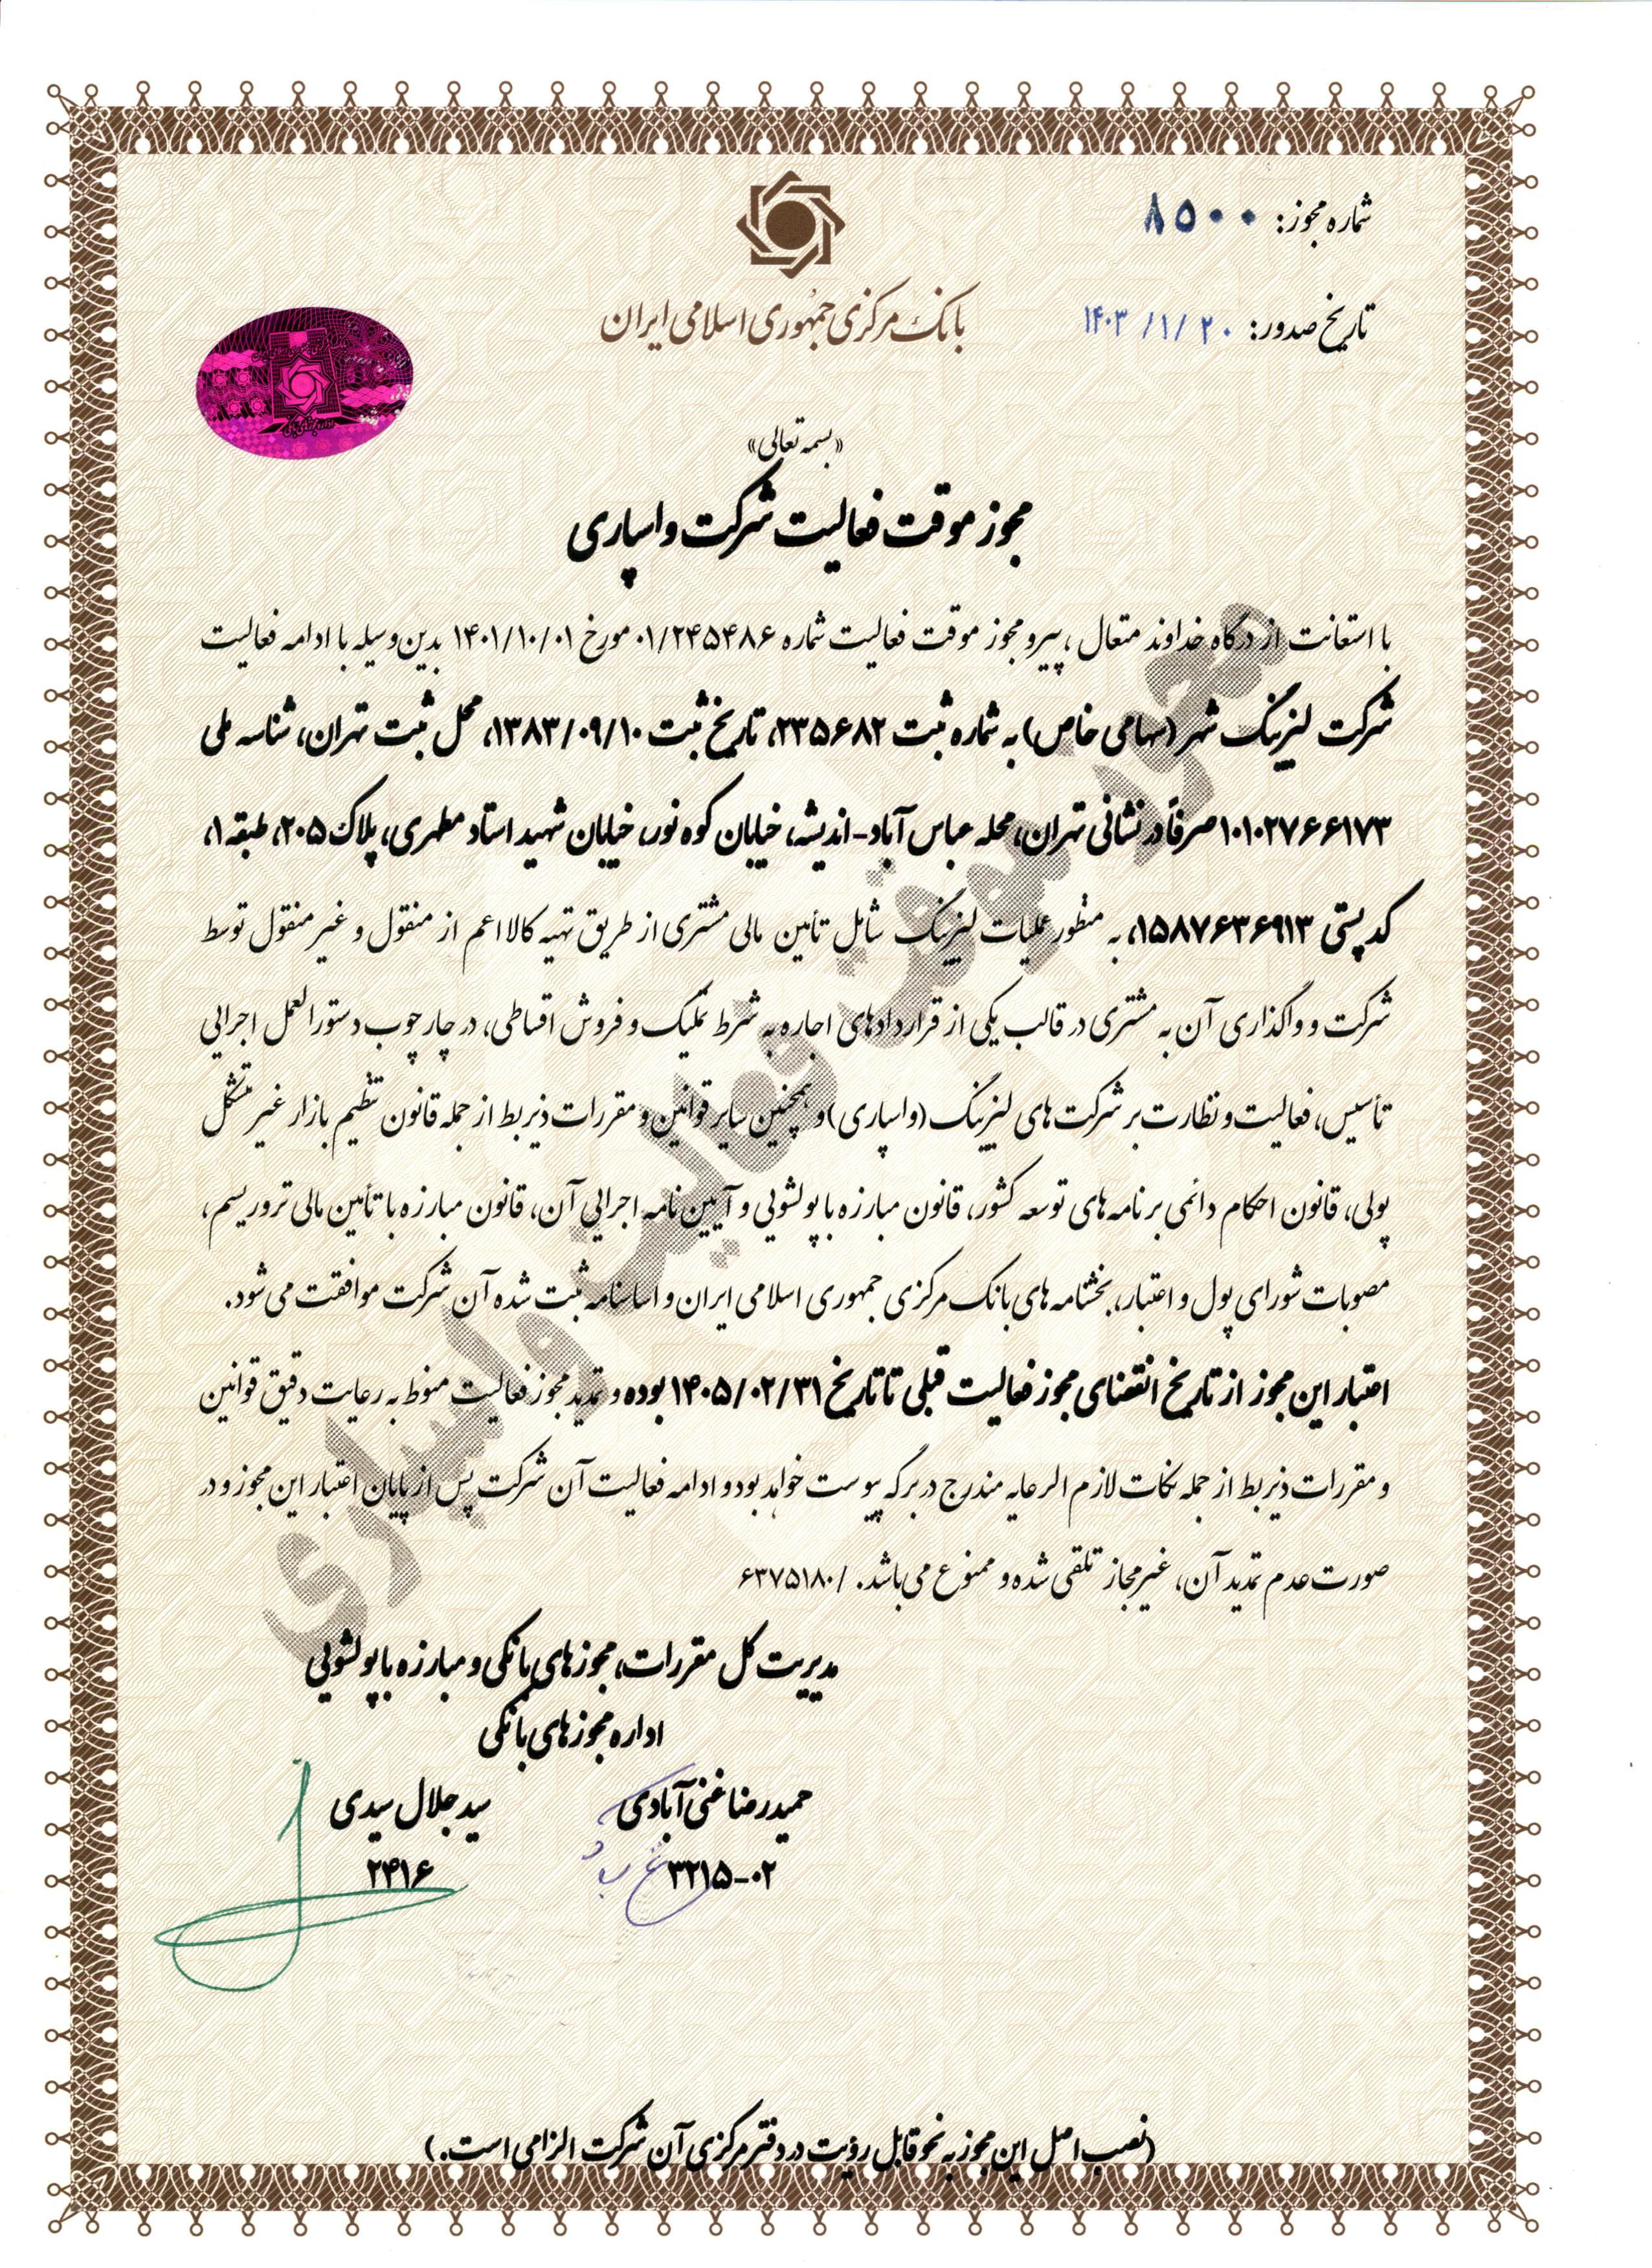 شماره مجوز: ۸۵۰۰
تاریخ صدور: ۱۴۰۳/۱/۲۰
بانک مرکزی جمهوری اسلامی ایران
«بسمه تعالی»
مجوز موقت فعالیت شرکت واسپاری
با استعانت از درگاه خداوند متعال، پیرو مجوز موقت فعالیت شماره ۰۱/۲۴۵۴۸۶ مورخ ۱۴۰۱/۱۰/۰۱ بدین‌وسیله با ادامه فعالیت
شرکت لیزینگ شهر (سهامی خاص) به شماره ثبت ۲۳۵۶۸۲، تاریخ ثبت ۱۳۸۳/۰۹/۱۰، محل ثبت تهران، شناسه ملی
۱۰۱۰۲۷۶۶۱۷۳ صرفاً در نشانی تهران، محله عباس آباد-اندیشه، خیابان کوه نور، خیابان شهید استاد مطهری، پلاک ۲۰۵، طبقه ۱،
کد پستی ۱۵۸۷۶۳۶۹۱۳، به منظور عملیات لیزینگ شامل تأمین مالی مشتری از طریق تهیه کالا اعم از منقول و غیر منقول توسط
شرکت و واگذاری آن به مشتری در قالب یکی از قراردادهای اجاره به شرط تملیک و فروش اقساطی، در چارچوب دستورالعمل اجرایی
تأسیس، فعالیت و نظارت بر شرکت های لیزینگ (واسپاری) و همچنین سایر قوانین و مقررات ذیربط از جمله قانون تنظیم بازار غیر متشکل
پولی، قانون احکام دائمی برنامه های توسعه کشور، قانون مبارزه با پولشویی و آیین نامه اجرایی آن، قانون مبارزه با تأمین مالی تروریسم،
مصوبات شورای پول و اعتبار، بخشنامه های بانک مرکزی جمهوری اسلامی ایران و اساسنامه ثبت شده آن شرکت موافقت می شود.
اعتبار این مجوز از تاریخ انقضای مجوز فعالیت قبلی تا تاریخ ۱۴۰۵/۰۲/۳۱ بوده و تمدید مجوز فعالیت منوط به رعایت دقیق قوانین
و مقررات ذیربط از جمله نکات لازم الرعایه مندرج در برگه پیوست خواهد بود و ادامه فعالیت آن شرکت پس از پایان اعتبار این مجوز و در
صورت عدم تمدید آن، غیرمجاز تلقی شده و ممنوع می باشد. /۶۳۷۵۱۸۰
مدیریت کل مقررات، مجوزهای بانکی و مبارزه با پولشویی
اداره مجوزهای بانکی
حمیدرضا غنی آبادی سید جلال سیدی
۳۲۱۵-۰۲ ۲۴۱۶
(نصب اصل این مجوز به نحو قابل رؤیت در دفتر مرکزی آن شرکت الزامی است.)